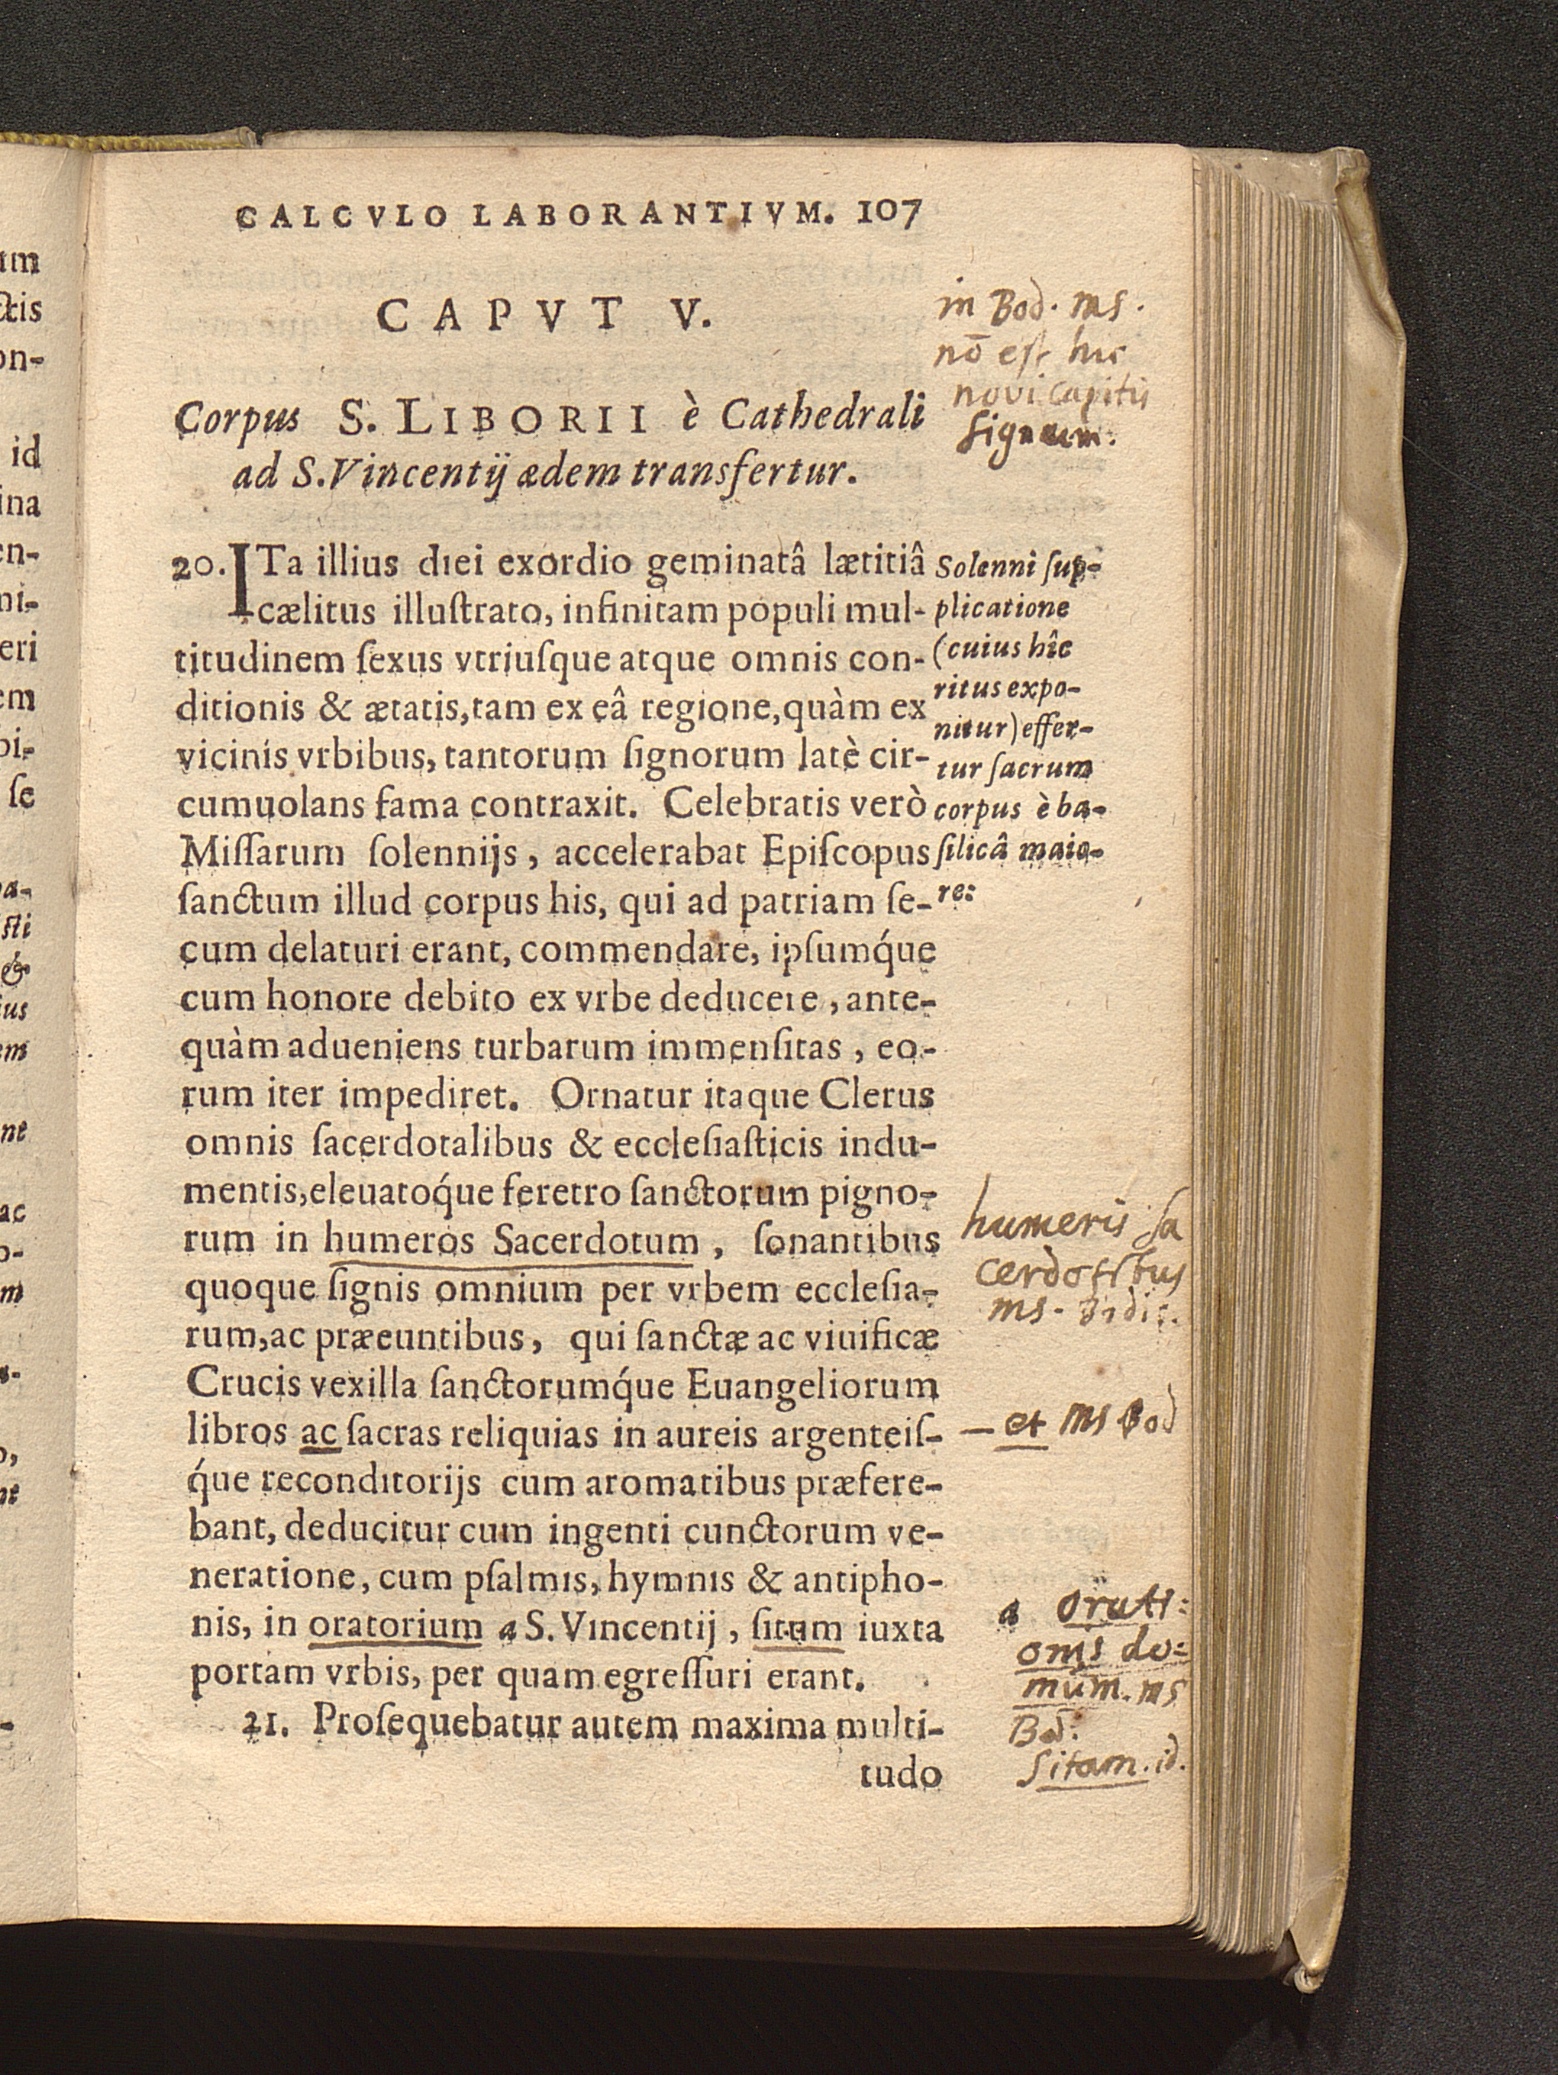 CALCVLO LABORANTIVM. 107
CAPVT V.
Corpus S. LIBORII è Cathedrali
ad S. Vincentij ædem transfertur.
20. ITa illius diei exordio geminatâ lætitiâ
cælitus illuſtrato, infinitam populi mul-
titudinem ſexus vtriuſque atque omnis con-
ditionis & ætatis, tam ex eâ regione, quàm ex
vicinis vrbibus, tantorum ſignorum latè cir-
cumuolans fama contraxit. Celebratis verò
Miſſarum ſolennijs, accelerabat Epiſcopus
ſanctum illud corpus his, qui ad patriam ſe-
cum delaturi erant, commendare, ipſumq́ue
cum honore debito ex vrbe deducere, ante-
quàm adueniens turbarum immenſitas, eo-
rum iter impediret. Ornatur itaque Clerus
omnis ſacerdotalibus & eccleſiaſticis indu-
mentis, eleuatoq́ue feretro ſanctorum pigno-
rum in humeros Sacerdotum, ſonantibus
quoque ſignis omnium per vrbem eccleſia-
rum, ac præeuntibus, qui ſanctæ ac viuificæ
Crucis vexilla ſanctorumq́ue Euangeliorum
libros ac ſacras reliquias in aureis argenteiſ-
q́ue reconditorijs cum aromatibus præfere-
bant, deducitur cum ingenti cunctorum ve-
neratione, cum pſalmis, hymnis & antipho-
nis, in oratorium a S. Vincentij, ſitum iuxta
portam vrbis, per quam egreſſuri erant.
21. Proſequebatur autem maxima multi-
tudo
in Bod. ms.
nō est hic
novi capitis
signum.
Solenni ſup-
plicatione
(cuius hîc
ritus expo-
nitur) effer-
tur ſacrum
corpus è ba-
ſilicâ maio-
re:
humeris sa
cerdotibus
ms.
— et ms Bod
a orati=
onis do=
mum. ms
Bod.
Sitam. id.
um
ctis
on-
id
ina
en-
ni-
eri
em
bi-
ſe
a-
ſti
&
ius
em
ne
ac
o-
m
o,
ne